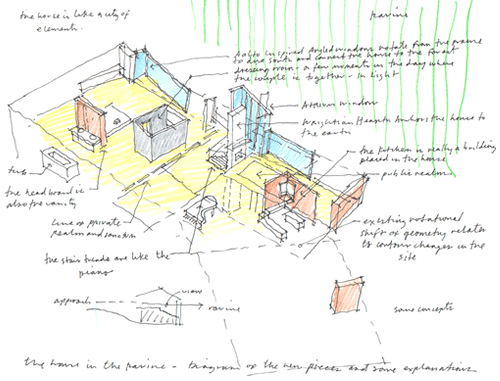 the house is like a city of
elements.
ravine
Aalto inspired angled windows rotate from the
to due south and connect the house to the forest
dressing room - a few moments in the day where
the couple is together - in light
window
Wrightian Hearth Anchors the house to
the earth
the kitchen is really a building
placed in the house
public realm
existing rotational
shift of geometry relates
to contour changes in the
site
tub
the headboard is
also the vanity
line of private
realm and
the stair treads are like the
piano
approach
view
ravine
some concepts
the house in the ravine - Diagram of the new pieces and some explanations